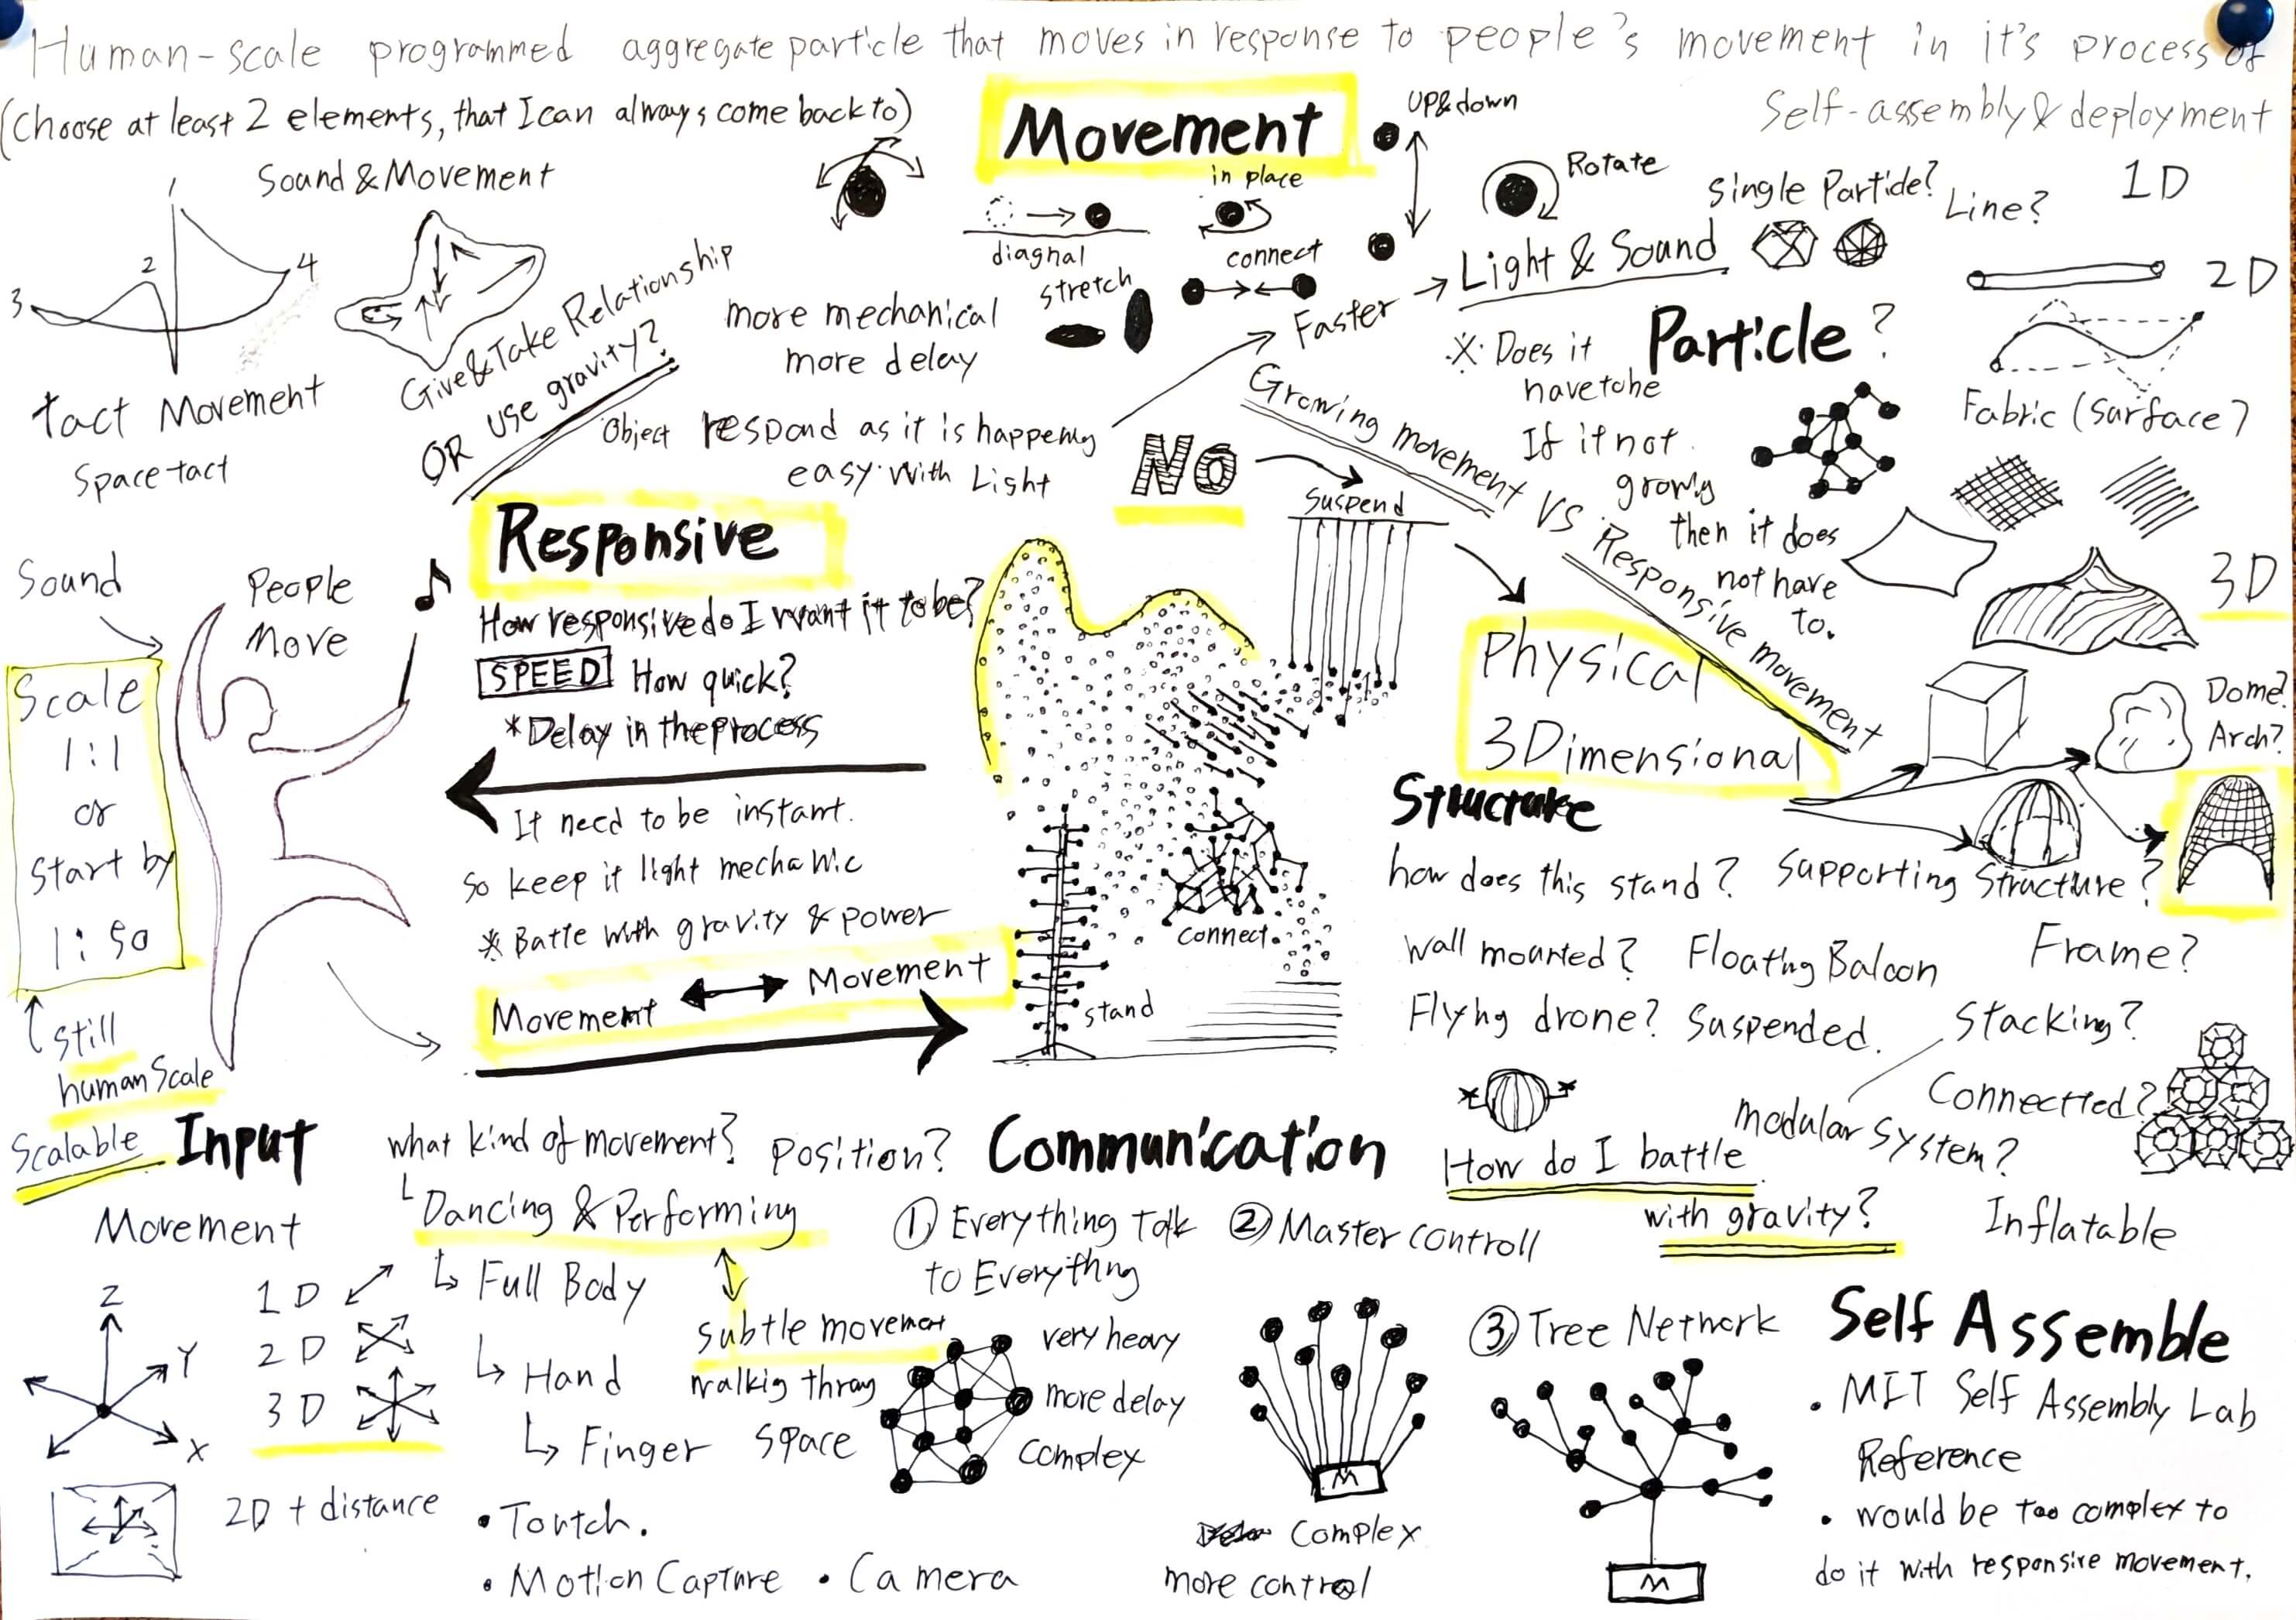 Human-scale programmed aggregate particle that moves in response to people's movement in it's process of
Self-assembly & deployment
(Choose at least 2 elements, that I can always come back to)
Sound & Movement
1
2
3
4
Tact Movement
Space tact
Give & Take Relationship
OR use gravity?
Movement
UP & down
in place
diagnal
connect
stretch
Rotate
more mechanical
more delay
Faster → Light & Sound
Object respond as it is happening
easy with Light
NO
Suspend
Growing movement VS Responsive movement
Single Particle?
Line?
1D
2D
Particle?
※ Does it
If it not
growing
then it does
not have
to.
Fabric (Surface?
3D
Physical
3Dimensional
Dome?
Arch?
Responsive
How responsive do I want it to be?
SPEED How quick?
* Delay in the process
It need to be instant.
So keep it light mechanic
※ Battle with gravity & power
Movement ↔ Movement
Sound
People
Move
Scale
1:1
or
Start by
1:50
still
human Scale
Scalable
connect
stand
Structure
how does this stand? Supporting Structure?
Wall mounted? Floating Baloon Frame?
Flying drone? Suspended. Stacking?
Connectted?
modular system?
How do I battle
with gravity?
Inflatable
Input
what kind of movement? Position?
Movement
Dancing & Performing
Full Body
Hand
Finger
subtle movement
Space
Z
Y
X
1D
2D
3D
2D + distance
• Toutch.
• Motion Capture • Camera
Communication
① Everything Talk
to Everything
very heavy
more delay
complex
② Master controll
M
Complex
more control
③ Tree Network
M
Self Assemble
• MIT Self Assembly Lab
Reference
• would be too complex to
do it with responsive movement.